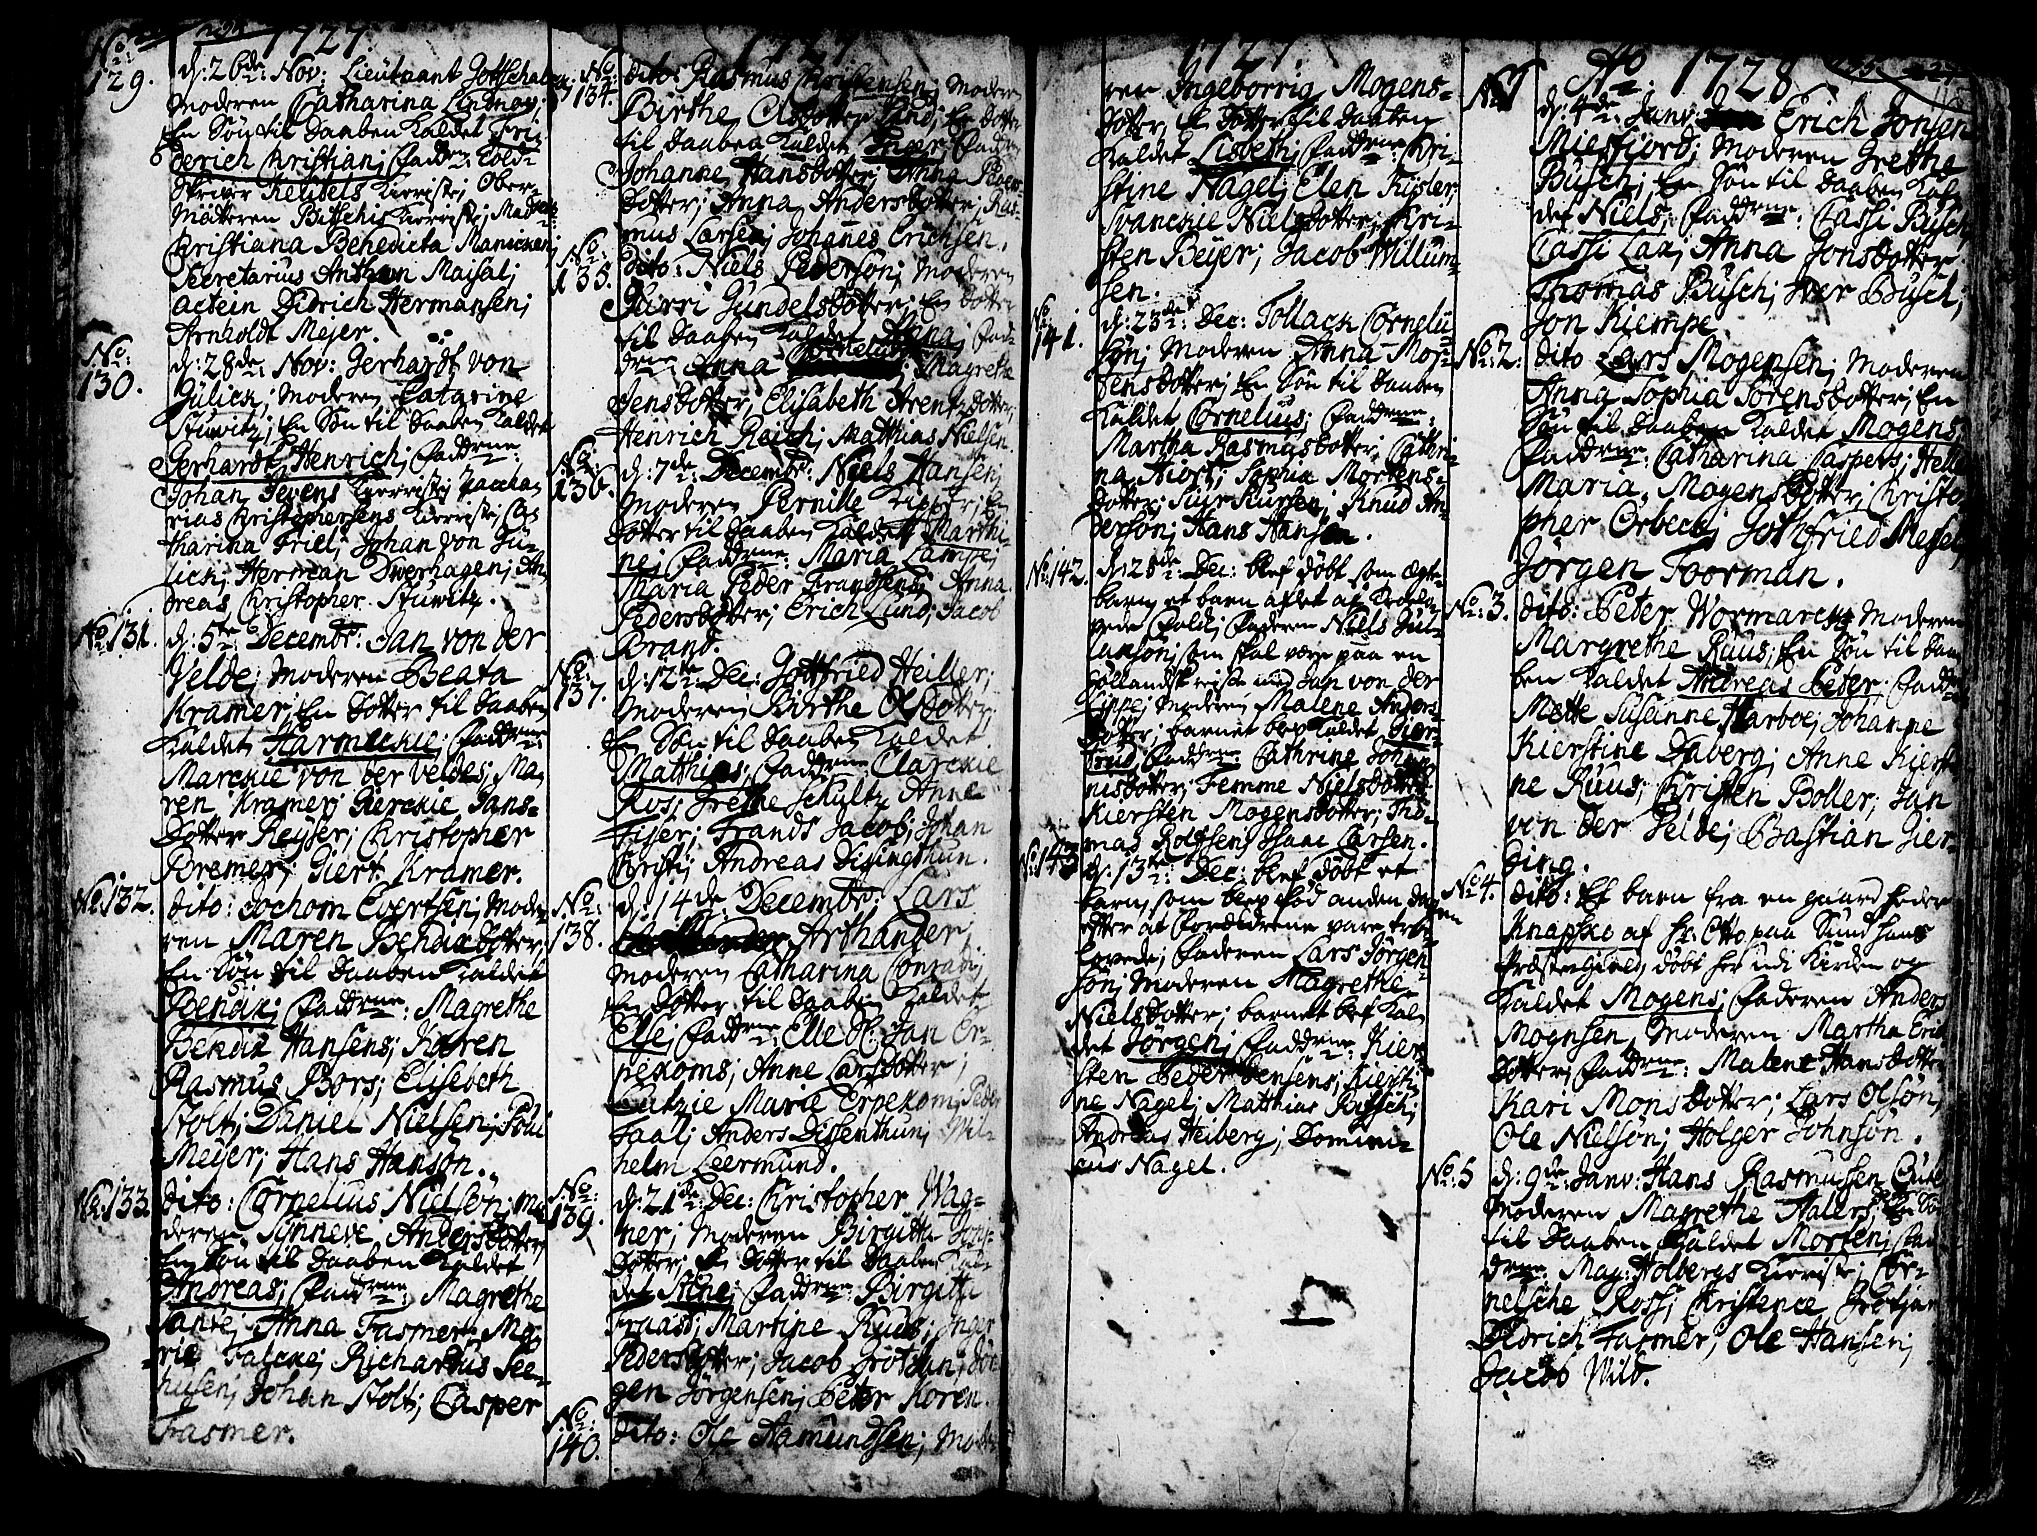 1727.
No: 129.
d: 26de: Nov: Lieutnant Gottschalck
moderen Catharina Lindnow;
En Søn til daaben kaldet Fri-
derich Christian; Fadd:ne Told-
skriver Reubels kierriste; Ober-
Christiana Benedicta Manicken;
Secretarius Anthon Maisal;
Didrich Hermansen;
Arnholdt Mejer.
No: 130.
d: 28de: Nov: Gerhardt von
Gülich; moderen Catarine
Stuwitz; En Søn til daaben kaldet
Gerhardt Henrich; Faddrne:
Johan Jevers kierriste; Zacha-
rias Christophersens kierriste; Ca-
tharina Friel; Johan von Gü-
lich; Herman Dwerhagen; An-
dreas Christopher Stuwitz.
No: 131.
d: 5te Decembr: Jan von der
Velde; moderen Beata
Kramer; En dotter til daaben
kaldet Harmeckie; Faddrne
Marckie von der Veldes; Ma-
ren Kramer; Gierckie Jans-
dotter Reyser; Christopher
Bremer; Giert Kramer.
No: 132.
dito: Jochom Evertsen; mode-
ren Maren Bendixdotter;
En Søn til daaben kaldet
Bendix; Faddrne: Magrethe
Bendix Hansens; Karen
Rasmus Bors; Elisebeth
Stolt; Daniel Nielsen; Povl
Meyer; Hans Hanson.
No: 133.
dito: Cornelius Nielsøn; mo-
deren Synneve Andersdotter;
En Søn til daaben kaldet
Andreas; Faddrne: Magrethe
Anna Fasmer; Ma-
rie Falcke; Richardus See-
husen; Johan Stolt; Casper
Fasmer.
1727
No: 134.
dito: Rasmus Christensen; modere
Birthe Olsdotter Lund; En dotter
til daaben kaldet Inger; Fadd:
Johanne Hansdotter; Anna Peder-
dotter; Anna Andersdotter; Ras-
mus Larsen; Johannes Erichsen.
No: 135.
dito: Niels Pedersøn; moderen
Siirri Gundelsdotter; En dotter
til daaben kaldet Anna; Fad-
drne: Anna Magrete
Jensdotter; Elisabeth Arentzdotter;
Henrich Reich; Matthias Nielsen.
No: 136.
d: 7de: Decembr: Niels Hansen;
moderen Pernille; En
dotter til daaben kaldet Marthi-
ne; Faddrne: Maria Lampe;
Maria Peder Frandsens; Anna
Pedersdotter; Erich Lund; Jacob
Brand.
No: 137.
d: 12te Dec: Gottfried Heiller;
moderen Birthe Olsdotter;
En Søn til daaben kaldet
Matthias; Faddrne: Clarckie
Ros; Grethe Schultz Anne
Fiser; Frands Jacob; Johan
Christi; Andreas Disingthun.
No: 138.
d: 14de: Decembr: Lars
Arthander;
moderen Catharina Conradi;
En dotter til daaben kaldet
Else; Faddrne Elle Jan Er-
pekoms; Anne Larsdotter;
Lutzie Marie Erpekom; Peder
Faal; Anders Dissenthun; Wil-
helm Leermund.
No: 139.
d: 21de: Dec: Christopher Wag-
ner; moderen Birgitta
dotter; En dotter til daaben kal-
det Stine; Faddrne: Birgitte
Fraas; Martine Ruus; Inger
Pedersdotter; Jacob Grotian; Jør-
gen Jørgensen; Peter Koren.
No: 140.
dito: Ole Aamundsen; mode
1727.
ren Ingeborrig Mogens-
dotter, En dotter til daaben
kaldet Lisbeth; Faddrne: Chri-
stine Nagel; Elen Fisler;
Svanckie Nielsdotter; Chri-
sten Beyer; Jacob Willum-
sen.
No: 141.
d: 23de: Dec: Tollack Corneliu-
søn; moderen Anna Mor-
tensdotter; En Søn til daaben
kaldet Cornelius; Faddrne:
Martha Rasmusdotter; Cathri-
na Hiort; Sophia Mortens-
dotter; Siur Siursen; Knud An-
dersøn; Hans Hansen.
No: 142.
d: 28de: Dec: blef døbt som Ægte-
barn, et barn aflet af trolo-
vede folk; Faderen Niels Jul-
iansøn; som skal være paa en
Hollandsk reise med Jan von der
Lippe; moderen Malene Anders-
dotter; barnet blef kaldet Gier-
trud; Faddrne: Cathrine Johan-
nisdotter; Femme Nielsdotter;
Kiersten Mogensdotter; Tho-
mas Rolfsen; Isaac Larsen.
No: 143
d: 13te: Dec: blef døbt et
barn, som blef fød anden dagen
efter at forældrene vare trol-
lovede; Faderen Lars Jørgen-
søn; moderen Magrethe
Nielsdotter; barnet blef kal-
det Jørgen; Faddrne: Kier-
sten Peder Jensens; Kiersti-
ne Nagel; Matthias Bissch;
Andreas Heiberg; Domini-
cus Nagel.
Ao 1728
No: 1
d: 4de: Janv: Erich Jonsen
Miesfiord; moderen Grethe
Busch; En Søn til daaben kal-
det Niels; Faddrne: Cassi Busch;
Cassi Lax; Anna Jonsdotter
Thomas Busch; Iver Busch;
Jon Kiempe.
No: 2:
dito Lars Mogensen; moderen
Anna Sophia Sørensdotter; En
Søn til daaben kaldet Mogens;
Faddrne: Catharina Caspers; Helle
Maria Mogensdotter; Christo-
pher Orbeck; Gothfried Messel;
Jørgen Foorman.
No: 3.
dito: Peter Wormarck; moderen
Margrethe Ruus; En Søn til daa-
ben kaldet Andreas Peder; Faddrne
Mette Susanne Harboe; Johanne
Kierstine Daberg; Anne Kiersti-
ne Ruus; Christen Boller; Jan
von der Velde; Bastian Gier-
ding.
No: 4.
dito: Et barn fra en gaard heder
Knapskog af Hr. Otto paa Sund hans
Præstegield, døbt her udi Kirken og
kaldet Mogens; Faderen Anders
Mognsen, moderen Martha Erichs-
dotter; Faddrne: Malene Hansdotter
Kari Monsdotter; Lars Olsøn;
Ole Nielsøn; Holger Johnsøn.
No: 5
d: 9de: Janv: Hans Rasmussen
moderen Magrethe Aalers; En Søn
til daaben kaldet Morten; Fad-
drne: Mag: Holbergs kierriste; Cor-
nelsche Ross; Christence Grotjan
Didrich Fasmer; Ole Hansen;
Jacob Wild.